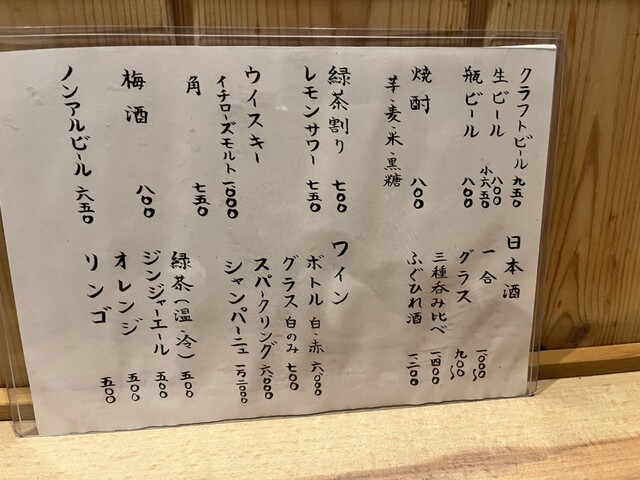 クラフトビール 九五〇
生ビール 八〇〇
小六五〇
瓶ビール 八〇〇
焼酎 八〇〇
芋・麦・米・黒糖
緑茶割り 七〇〇
レモンサワー 七五〇
ウイスキー
イチローズモルト 一〇〇〇
角 七五〇
梅酒 八〇〇
ノンアルビール 六五〇
日本酒
一合 一〇〇〇〜
グラス 九〇〇〜
三種呑み比べ 一四〇〇
ふぐひれ酒 一二〇〇
ワイン
ボトル 白・赤 六〇〇〇
グラス 白のみ 七〇〇
スパークリング 六〇〇〇
シャンパーニュ 一万二〇〇〇
緑茶(温・冷) 五〇〇
ジンジャーエール 五〇〇
オレンジ 五〇〇
リンゴ 五〇〇